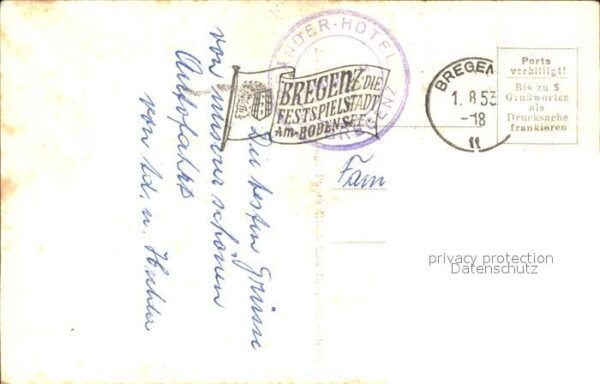 Die besten Grüsse
von unserer schönen
Autofahrt
von
Fam
NDER-HOTEL
BREGENZ
BREGENZ DIE
FESTSPIELSTADT
AM-BODENSEE
BREGEN
1.8.53
-18
Porto
verbilligt!
Bis zu 5
Grußworten
als
Drucksache
frankieren
privacy protection
Datenschutz